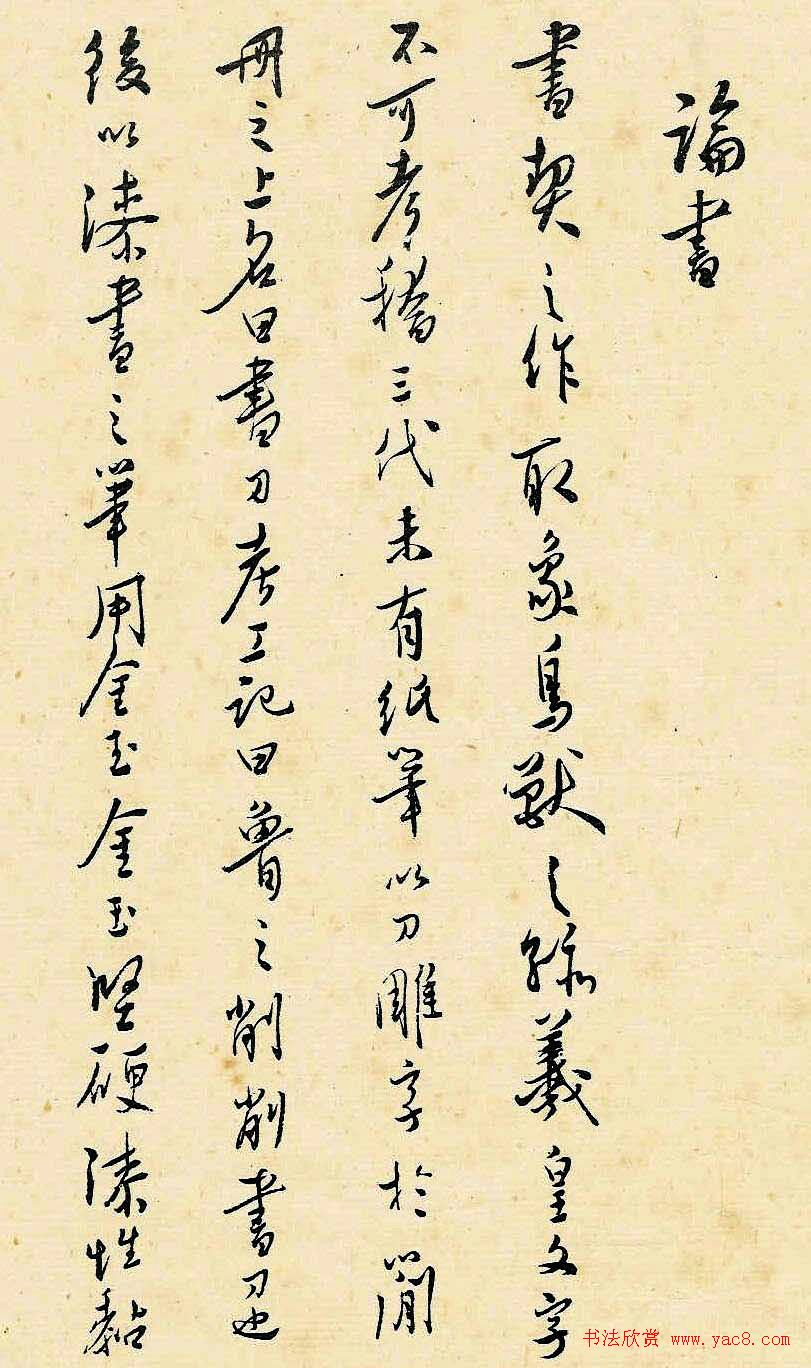 論書
書契之作取象鳥獸之跡羲皇文字
不可考稽三代未有紙筆以刀雕字於簡
冊之上名曰書刀考工記曰魯之削削書刀也
後以漆書之筆用金玉金玉堅硬漆性黏
书法欣赏 www.yac8.com